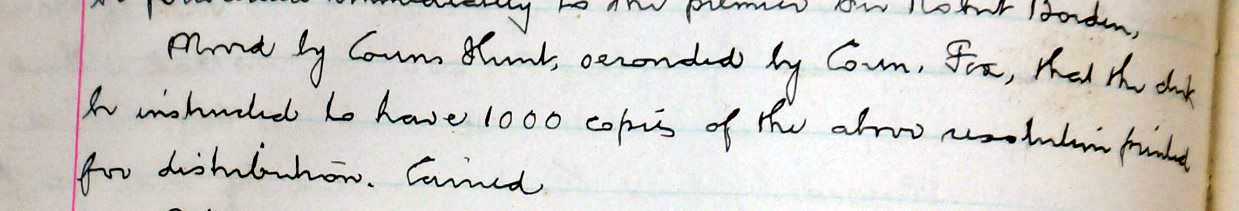 be forwarded immediately to the premier Sir Robert Borden,
Moved by Couns Hunt, seconded by Coun. Fox, that the clerk
be instructed to have 1000 copies of the above resolution printed
for distribution. Carried